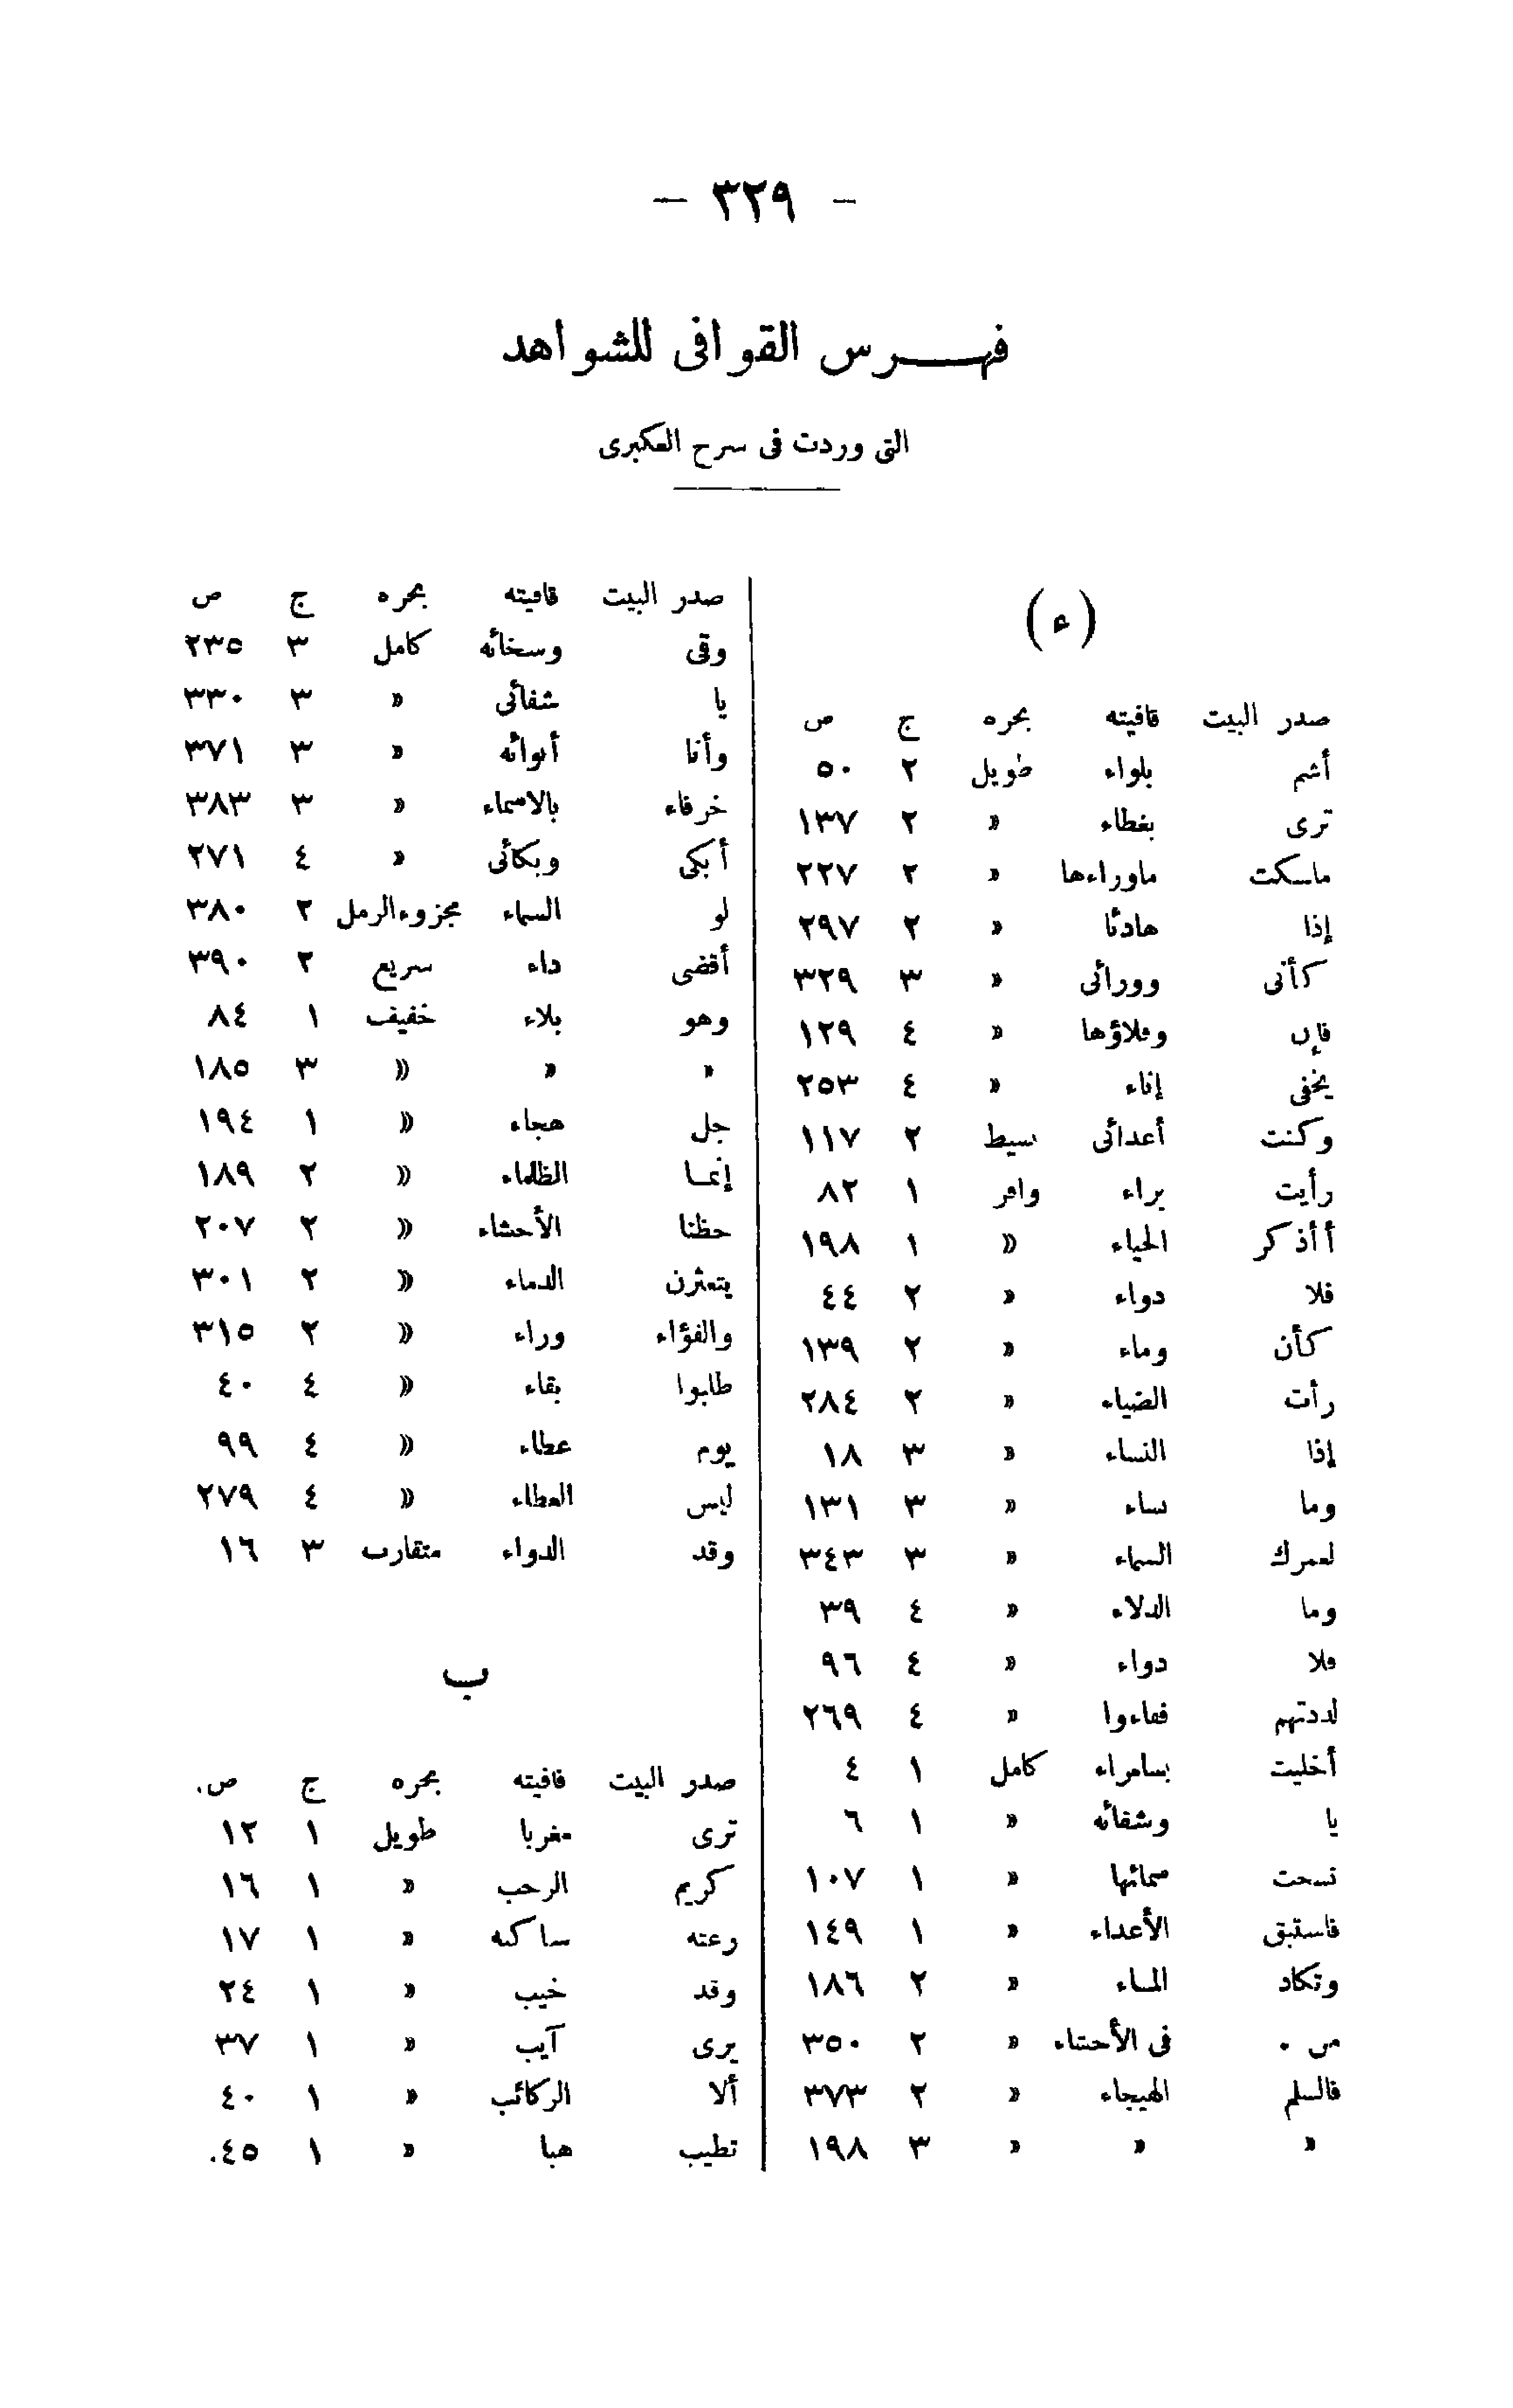 — ٣٢٩ —
فهـــرس القوافى للشواهد
التى وردت فى سرح العكبرى
(ء)
صدر البيت قافيته بحره ج ص
أشم بلواء طويل ٢ ٥٠
ترى بغطاء » ٢ ١٣٧
ماسكت ماوراءها » ٢ ٢٢٧
إذا هادئا » ٢ ٢٩٧
كأنى وورائى » ٣ ٣٢٩
فإن وملاؤها » ٤ ١٢٩
يخفى إناء » ٤ ٢٥٣
وكنت أعدائى بسيط ٢ ١١٧
رأيت براء وافر ١ ٨٢
أأذكر الحياء » ١ ١٩٨
فلا دواء » ٢ ٤٤
كأن وماء » ٢ ١٣٩
رأت الضياء » ٢ ٢٨٤
إذا النساء » ٣ ١٨
وما نساء » ٣ ١٣١
لعمرك السماء » ٣ ٣٤٣
وما الدلاء » ٤ ٣٩
فلا دواء » ٤ ٩٦
لددتهم فقاءوا » ٤ ٢٦٩
أخليت بسامراء كامل ١ ٤
يا وشفائه » ١ ٦
نسحت سمائها » ١ ١٠٧
فاستبق الأعداء » ١ ١٤٩
وتكاد المـاء » ٢ ١٨٦
من . فى الأحشاء » ٢ ٣٥٠
فالسلم الهيجاء » ٢ ٣٧٣
» » » ٣ ١٩٨
صدر البيت قافيته بحره ج ص
وقى وسخائه كامل ٣ ٢٣٥
يا شفائى » ٣ ٣٣٠
وأنا أنوائه » ٣ ٣٧١
خرفاء بالاسماء » ٣ ٣٨٣
أبكى وبكائى » ٤ ٢٧١
لو السماء مجزوء الرمل ٢ ٣٨٠
أقضى داء سريع ٢ ٣٩٠
وهو بلاء خفيف ١ ٨٤
» » » ٣ ١٨٥
جل هجاء » ١ ١٩٤
إنمـا الظلماء » ٢ ١٨٩
حظنا الأحشاء » ٢ ٢٠٧
يتعثرن الدماء » ٢ ٣٠١
والفؤاء وراء » ٢ ٣١٥
طابوا بقاء » ٤ ٤٠
يوم عطاء » ٤ ٩٩
ليس العطاء » ٤ ٢٧٩
وقد الدواء متقارب ٣ ١٦
ب
صدر البيت قافيته بحره ج ص.
ترى مغربا طويل ١ ١٢
كريم الرحب » ١ ١٦
رعته ساكبه » ١ ١٧
وقد خيب » ١ ٢٤
يرى آيب » ١ ٣٧
ألا الركائب » ١ ٤٠
تطيب هبا » ١ ٤٥.